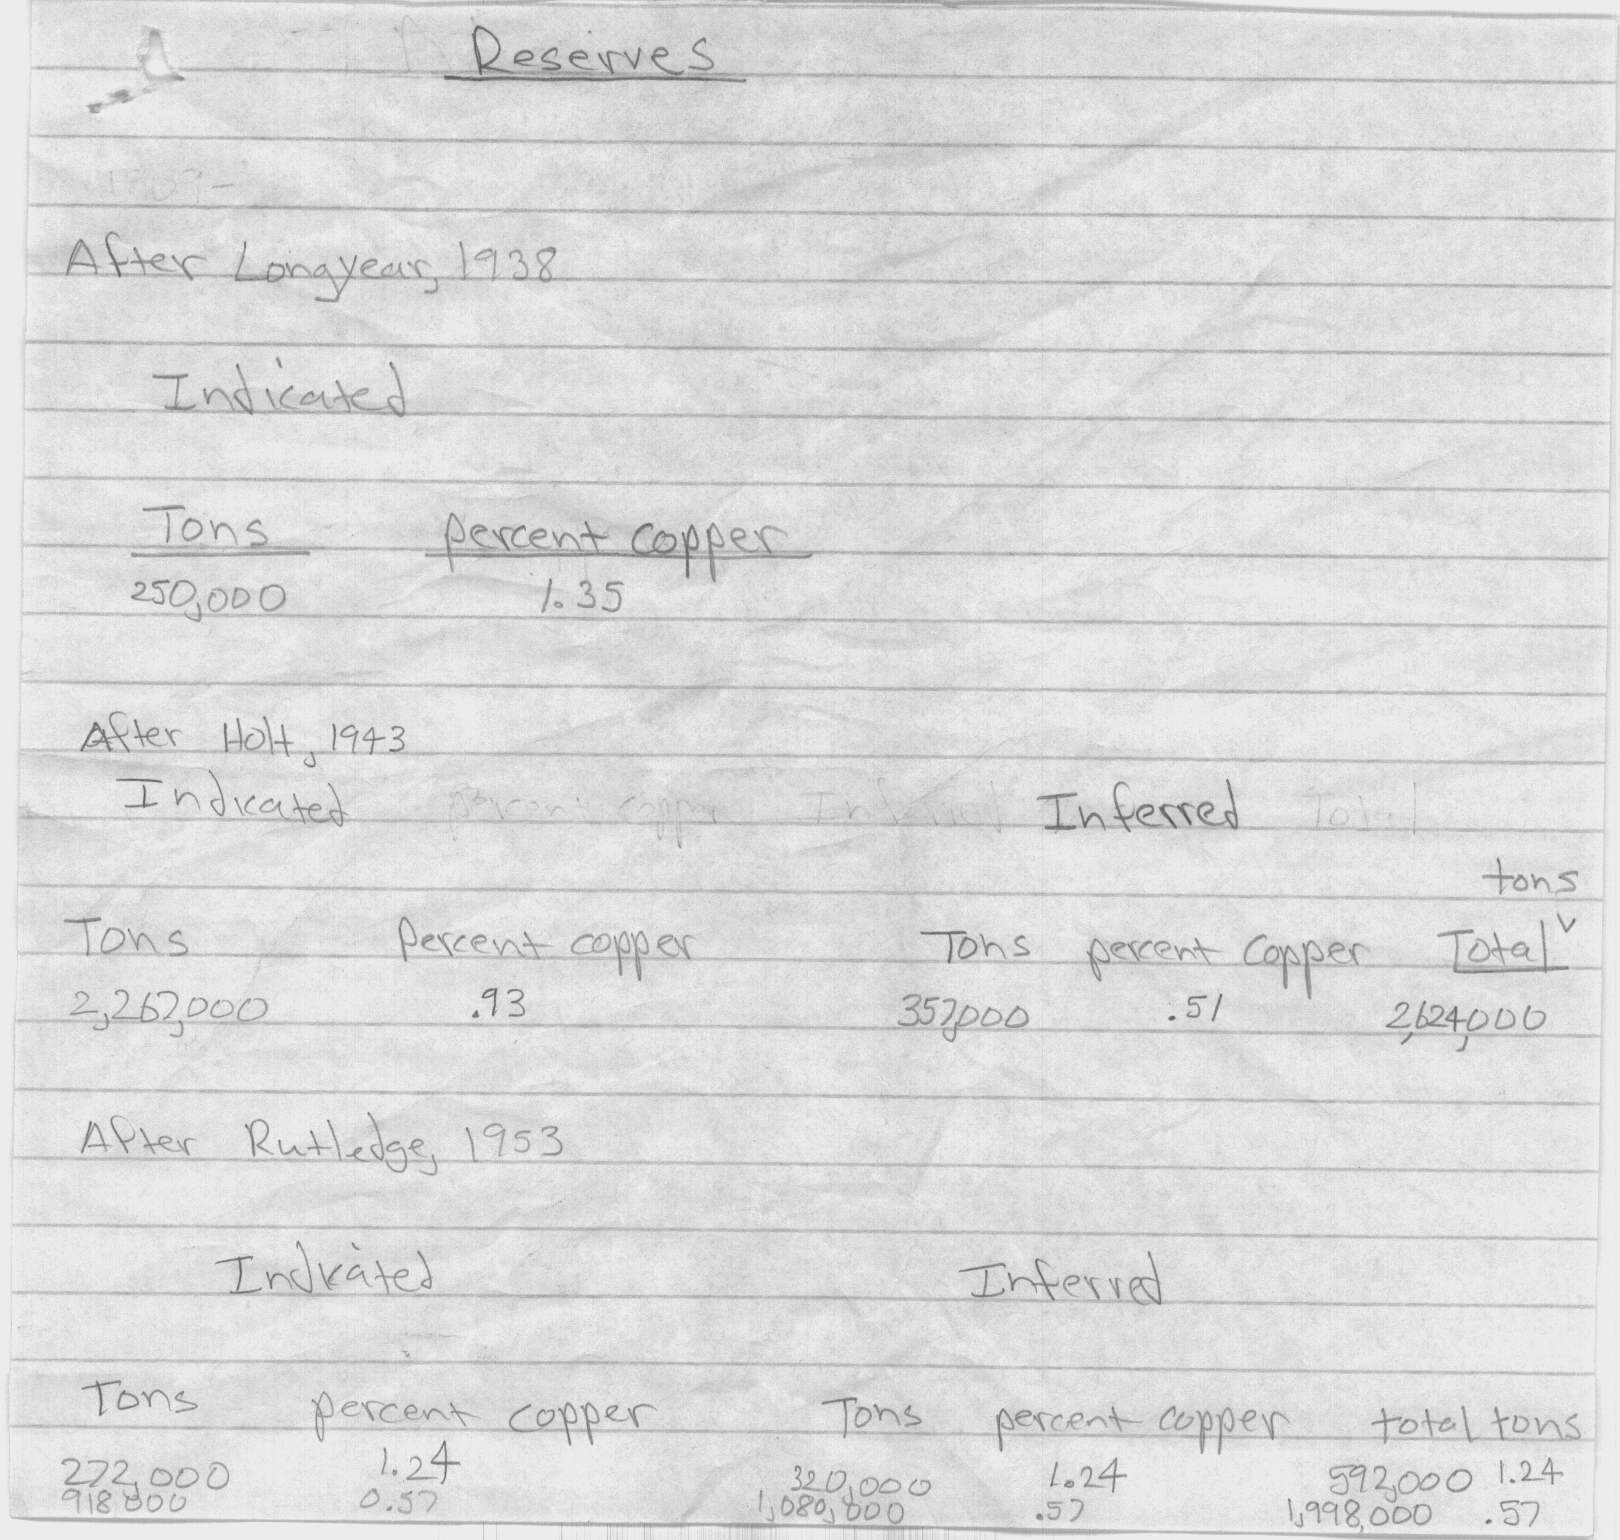 Reserves
After Longyear, 1938
Indicated
Tons percent copper
250,000 1.35
After Holt, 1943
Indicated percent copper Inferred Inferred Total
tons
Tons Percent copper Tons percent copper Total ᵛ
2,267,000 .93 357,000 .51 2,624,000
After Rutledge, 1953
Indicated Inferred
Tons percent copper Tons percent copper total tons
272,000 1.24 320,000 1.24 592,000 1.24
918000 0.57 1,080,000 .57 1,998,000 .57